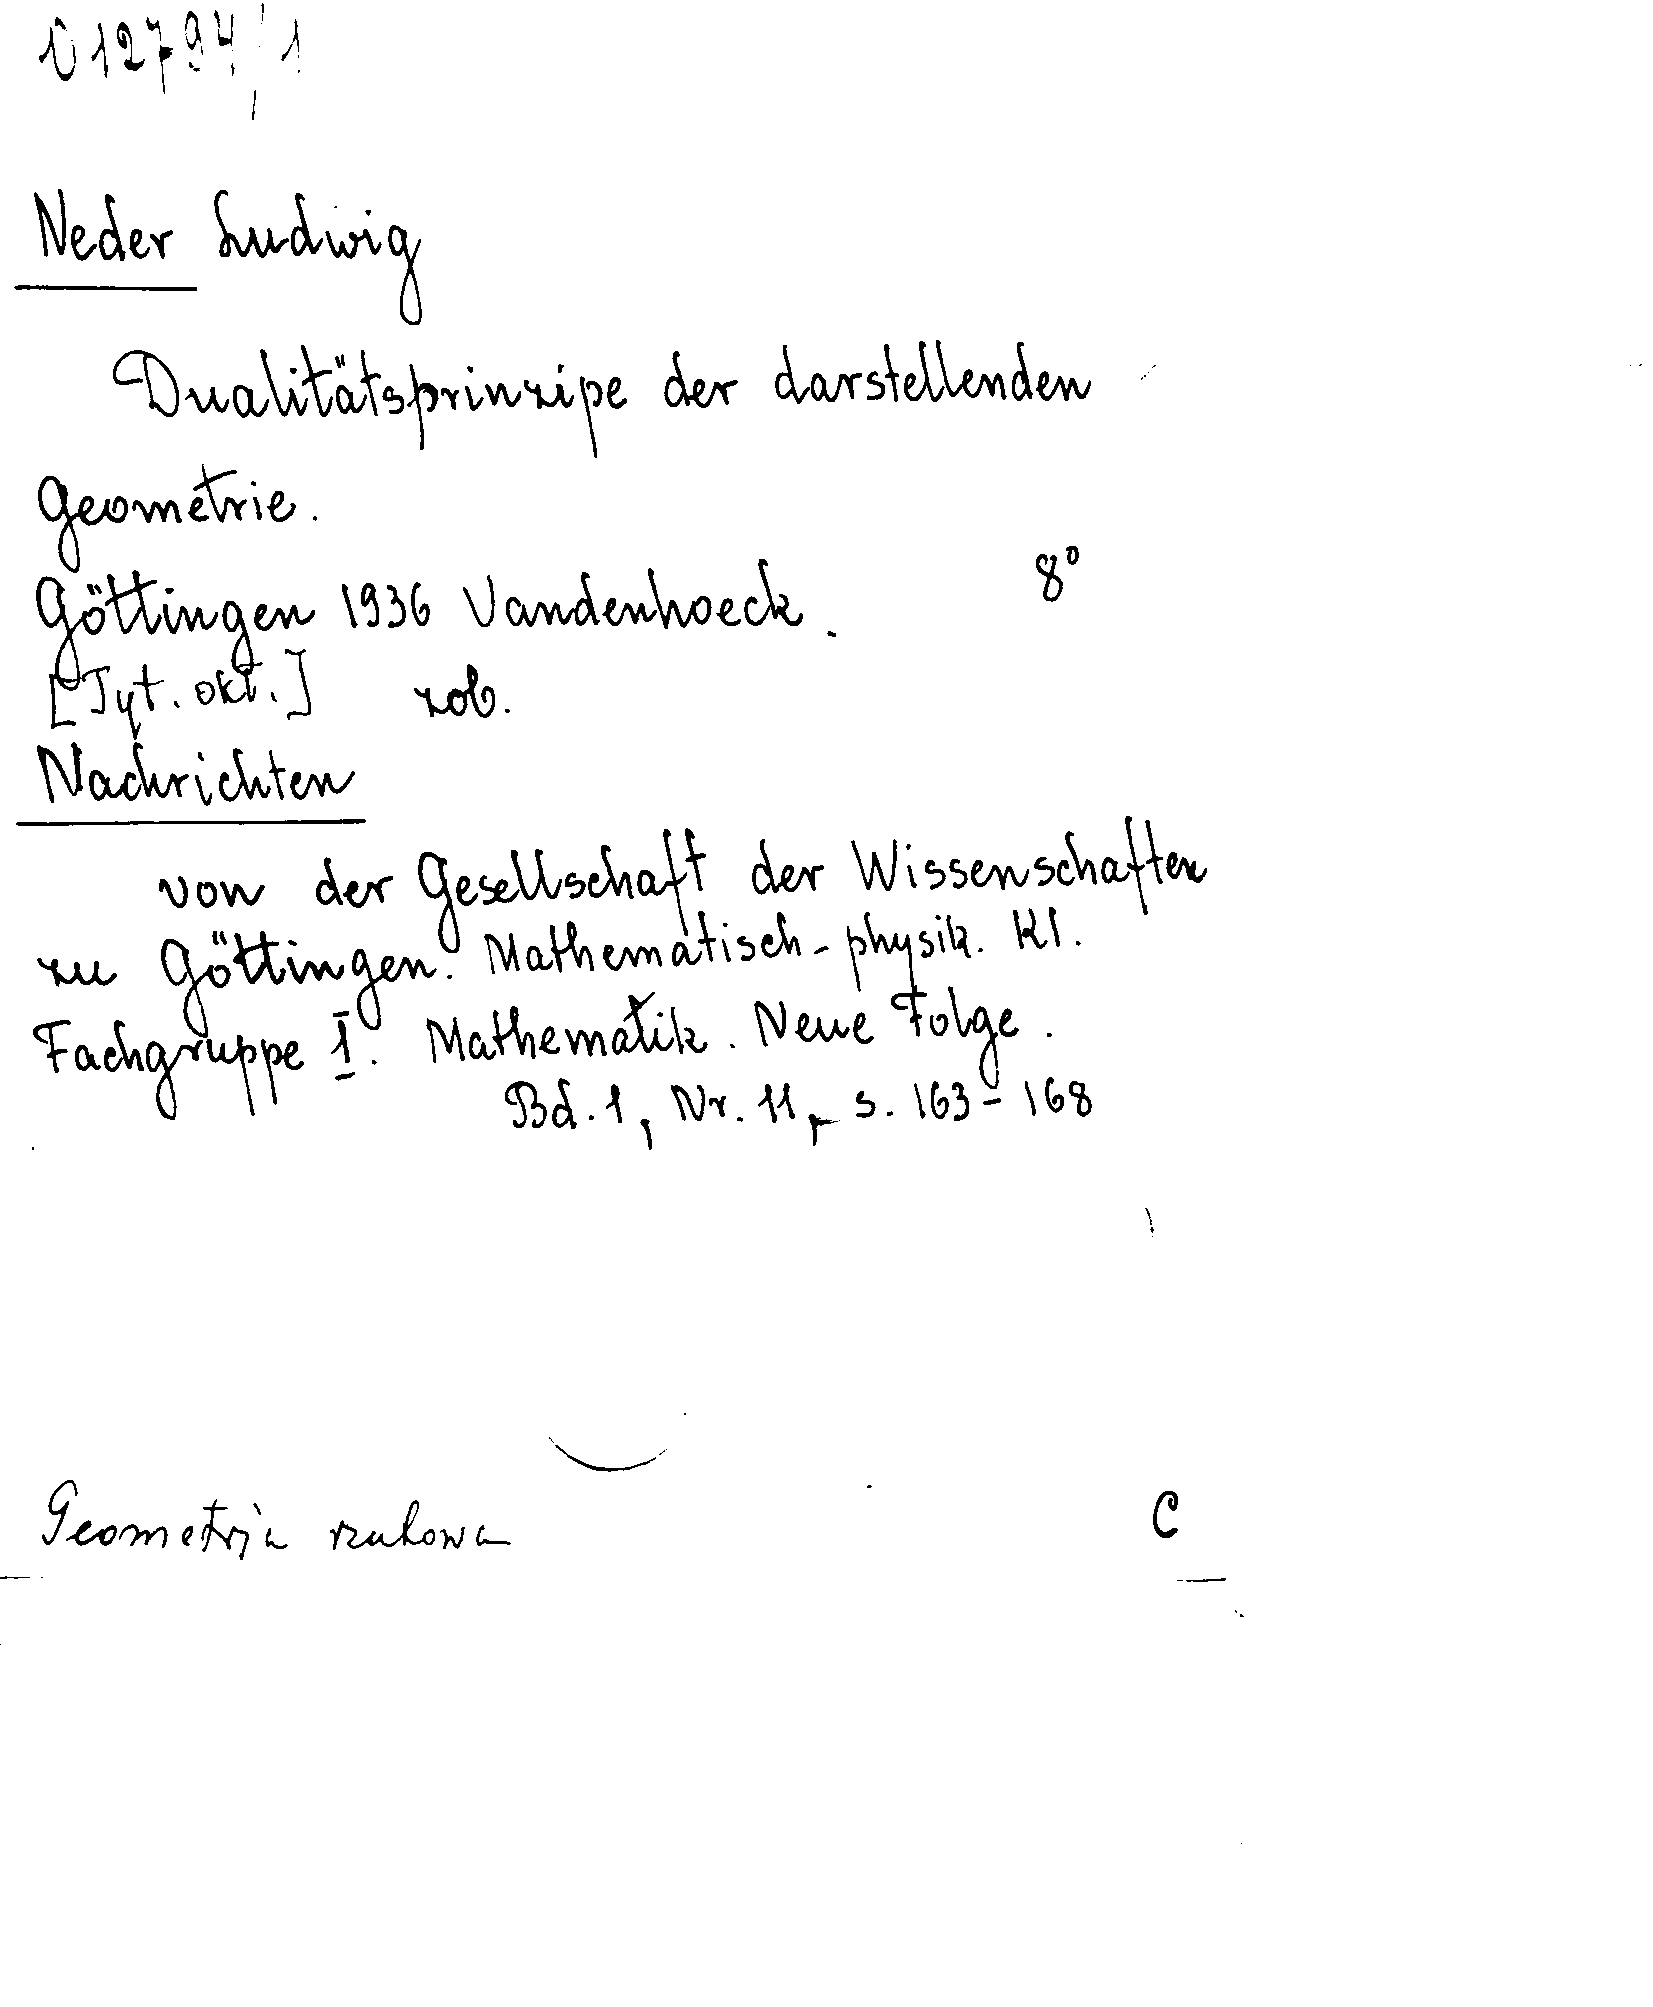 012794/1
Neder Ludwig
Dualitätsprinzipe der darstellenden
Geometrie.
8°
Göttingen 1936 Vandenhoeck.
[Tyt. okł.] zob.
Nachrichten
von der Gesellschaft der Wissenschaften
zu Göttingen. Mathematisch-physik. Kl.
Fachgruppe I. Mathematik. Neue Folge.
Bd. 1, Nr. 11, s. 163-168
Geometria rzutowa C